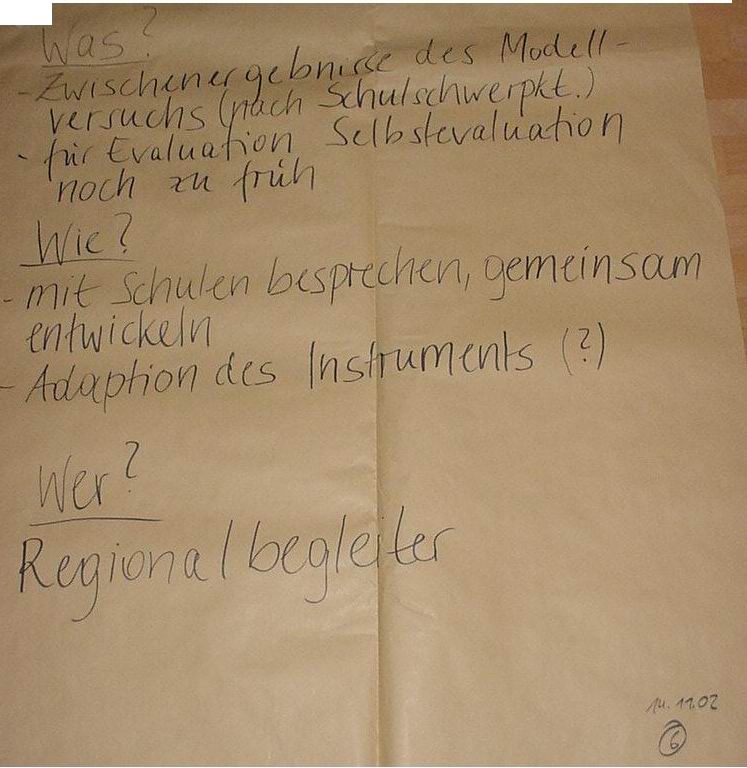 Was?
- Zwischenergebnisse des Modell-
versuchs (nach Schulschwerpkt.)
- für Evaluation Selbstevaluation
noch zu früh
Wie?
- mit Schulen besprechen, gemeinsam
entwickeln
- Adaption des Instruments (?)
Wer?
Regionalbegleiter
14.11.02
6